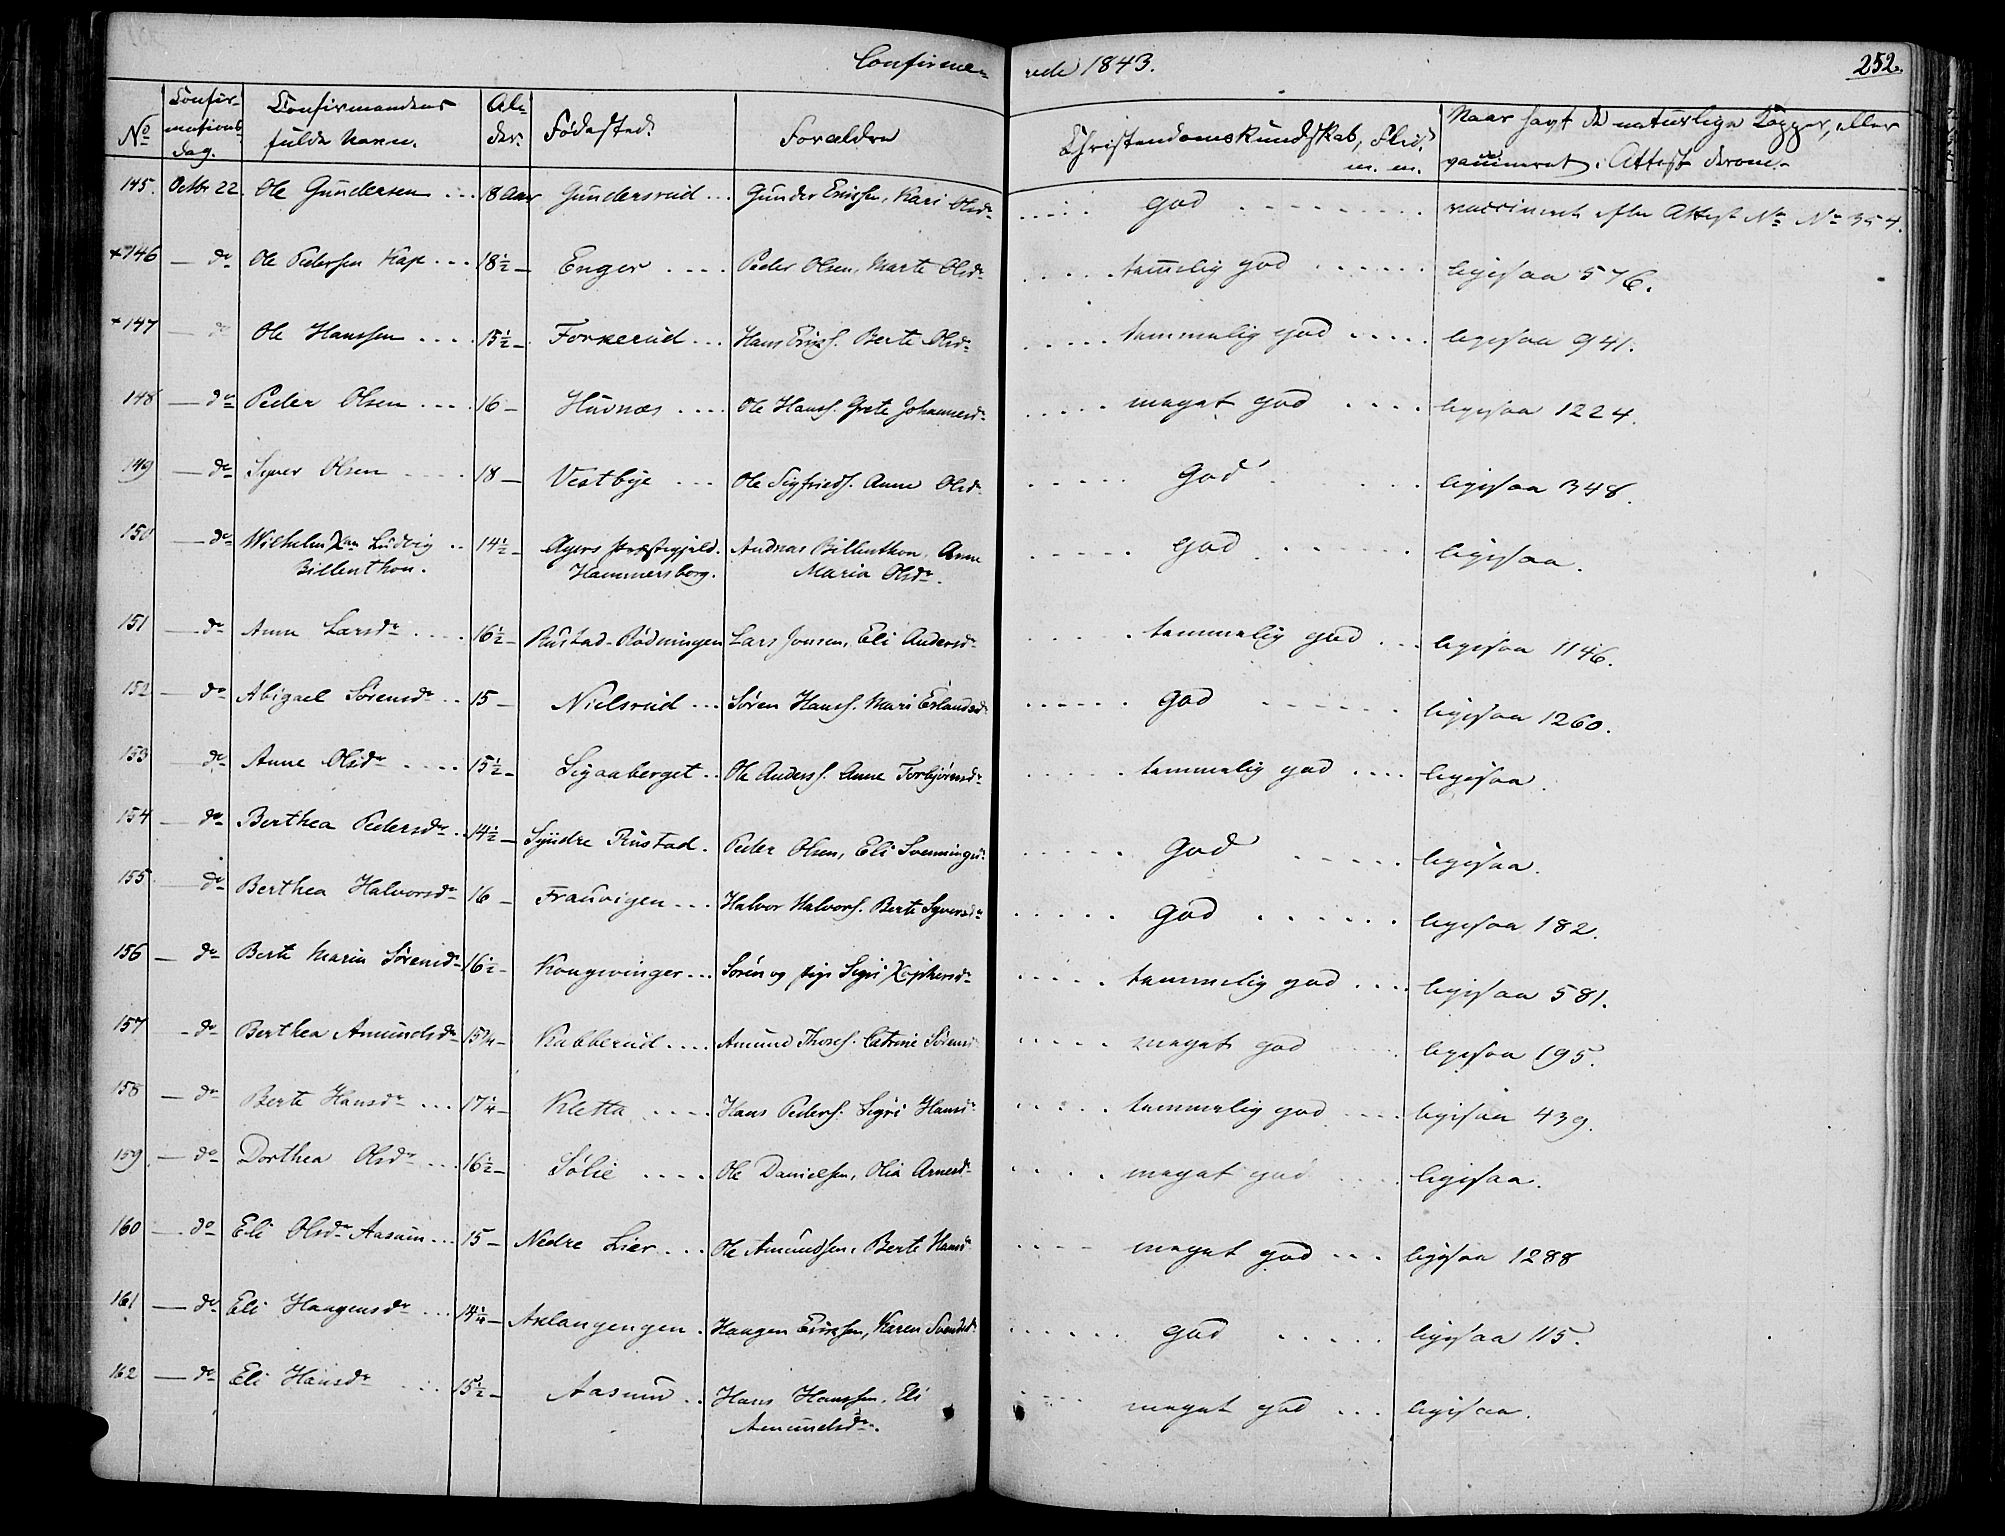 Confirme-
rede 1843.
252.
No
Confir-
mations
dag.
Confirmandens
fulde Navn.
Al-
der.
Fødested.
Forældre
Christendomskundskab, Flid.
m. m.
Naar havt de naturlige Kopper, eller
vaccineret. Attest derom.
145. Octbr 22. Ole Gundersen 18 Aar Gundersrud Gunder Erichsen, Kari Olsdr god vaccineret efter Attest No No 354.
+146 — do Ole Pedersen Kap 18½ — Enger Peder Olsen, Marte Olsdr tammelig god ligesaa 576.
+147 — do Ole Hanssen 15½ — Forkerud Hans Eriks. Berte Olsdr tammelig god ligesaa 941.
148 — do Peder Olsen 16 — Huvnæs Ole Hans. Grete Johannesdr meget god ligesaa 1224.
149 — do Syver Olsen 18 — Vestbye Ole Sigfrieds. Anne Olsdr god ligesaa 348.
150 — do Wilhelm Xan Ludvig 14½ — Agers Præstegjeld. Andreas Billenthon, Anne god ligesaa.
Billenthon. Hammersborg. Maria Olsdr.
151 — do Anne Larsdr 16½ — Rustad-Rødningen Lars Jonsen, Eli Andersdr tammelig god ligesaa 1146.
152 — do Abigael Sørensdr 15 — Nielsrud Søren Hans. Mari Erlandsd. god ligesaa 1260.
153 — do Anne Olsdr 15½ — Ligaaberget Ole Anders. Anne Torbjørensdr tammelig god ligesaa.
154 — do Berthea Pedersdr 14½ — Syndre Rustad. Peder Olsen, Eli Svennings. god ligesaa.
155 — do Berthea Halvorsdr 16 — Frauvigen Halvor Halvors. Berte Syversdr god ligesaa 182.
156 — do Berte Maria Sørensdr 16½ — Kongwinger Søren og pige Sigri Xophersdr tammelig god ligesaa 581.
157 — do Berthea Amundsdr 15¾ — Kabberud Amund Thors. Catrine Sørens. meget god ligesaa 195.
158 — do Berte Hansdr 17¼ — Kletta Hans Peders. Sigri Hans. tammelig god ligesaa 439.
159 — do Dorthea Olsdr 16½ — Sølie Ole Danielsen, Olia Arnesdr meget god ligesaa.
160 — do Eli Olsdr Aasum 15 — Nedre Lier Ole Amundsen, Berte Hans. meget god ligesaa 1288
161 — do Eli Haagensdr 14¼ — Aslangengen. Haagen Eriksen, Karen Svendsd. god ligesaa 115.
162 — do Eli Hansdr 15½ — Aasund Hans Hanssen, Eli meget god ligesaa.
Amundsdr.